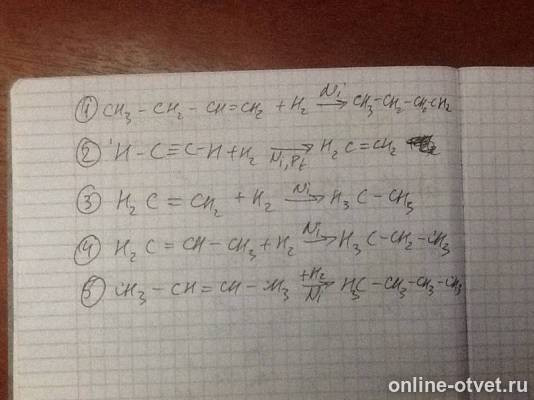 ① CH₃ – CH₂ – CH = CH₂ + H₂ –Ni→ CH₃–CH₂–CH₂–CH₂
② H – C ≡ C – H + H₂ –Ni, Pt→ H₂C = CH₂
③ H₂C = CH₂ + H₂ –Ni→ H₃C – CH₃
④ H₂C = CH – CH₃ + H₂ –Ni→ H₃C – CH₂ – CH₃
⑤ CH₃ – CH = CH – CH₃ –+H₂, Ni→ H₃C – CH₃ – CH₃ – CH₃
online-otvet.ru